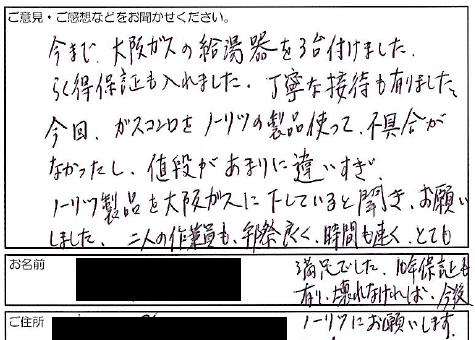 ご意見・ご感想などをお聞かせください。
今まで、大阪ガスの給湯器を3台付けました。
らく得保証も入れました。丁寧な接待も有りました。
今回、ガスコンロをノーリツの製品使って、不具合が
なかったし、値段があまりに違いすぎ、
ノーリツ製品を大阪ガスに下していると聞き、お願い
しました。二人の作業員も、手際良く、時間も速く、とても
お名前
満足でした。10年保証も
有り、壊れなければ、今後
ご住所
ノーリツにお願いします。